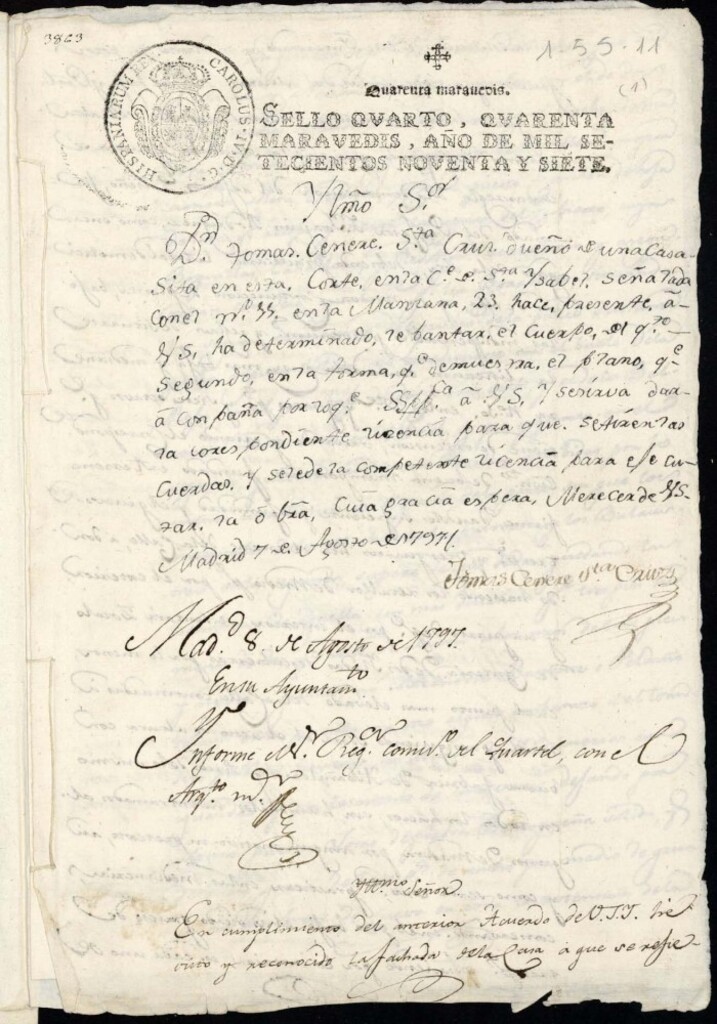 3863
1-55-11
(1)
HISPANIARUM REX CAROLUS·IV·D·G·
Quarenta maravedis.
SELLO QVARTO, QVARENTA
MARAVEDIS, AÑO DE MIL SE-
TECIENTOS NOVENTA Y SIETE.
Ylmo S.or
D.n Tomas. Cenere. S.ta Cruz. dueño de una Casa.
Sita en esta, Corte, en la C.e de S.ta Ysabel. señalada
Con el n.o en la Manzana, 23. hace, presente, á-
VS, ha determinado, lebantar, el Cuerpo, del q.to
Segundo, en la forma, q.e demuestra, el plano, q.e
á compaña por lo q.e Supp.ca á VS, Y se sirva dar-
la corespondiente licencia para que. se tiren las
Cuerdas. Y se le de la competente licencia para ege cu-
tar. la ó bra, Cuia gracia espera, Merecer de VS.
Madrid 7 de Agosto de 1797/.
Tomas Cenere Sta Cruz
Mad.d 8. de Agosto de 1797.
En su Ayuntam.to
Ynforme el S.r Reg.or comis.o del Quartel, con el
Arq.to m.or
Yttmo Señor.
En cumplimiento del anterior Acuerdo de V.S.I. he
visto y reconocido la fachada de la Casa á que se refie-